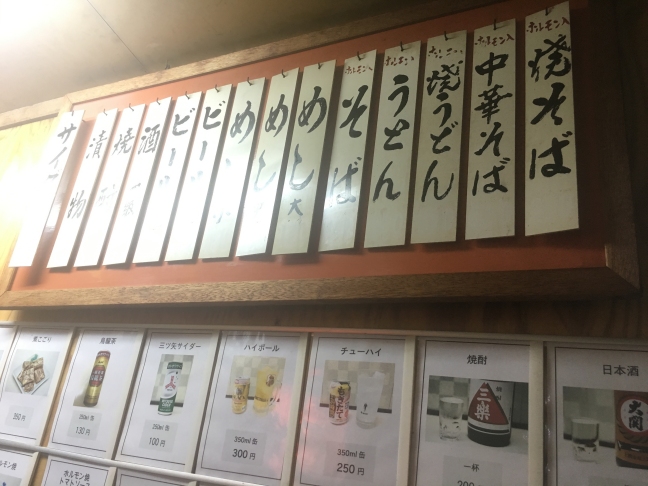 ホルモン入
焼そば
ホルモン入
中華そば
ホルモン入
焼うどん
ホルモン入
うどん
ホルモン入
そば
めし 大
めし
めし
ビー
ビー
酒
焼
漬物
サイ
煮こごり
350円
烏龍茶
250ml 缶
130円
三ツ矢サイダー
250ml 缶
100円
ハイボール
350ml 缶
300円
チューハイ
350ml 缶
250円
焼酎
三楽
一杯
日本酒
大関
ホルモン焼
ホルモン焼
トマトソース